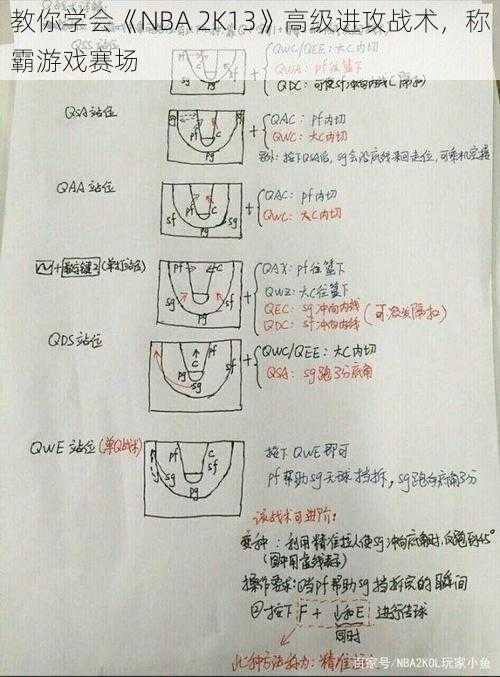 教你学会《NBA 2K13》高级进攻战术，称
霸游戏赛场
QWC/QEE: 大C内切
QWA: pf往篮下
QSA站位
QAC: pf内切
QWC: 大C内切
QAA站位
QAC: pf内切
QWC: 大C内切
QAX: pf往篮下
QWZ: 大C往篮下
QEC: sg冲向内线
QDC: sf冲向内线
QDS站位
QWC/QEE: 大C内切
QSA: sg跑3分底角
QWE站位(单Q战术)
按下QWE即可
pf帮助sg无球挡拆，sg跑向底角3分
该战术可进阶:
操作要求: ①当pf帮助sg挡拆完的瞬间
②按下 F + ↓和E 进行传球
同时
百家号/NBA2KOL玩家小鱼